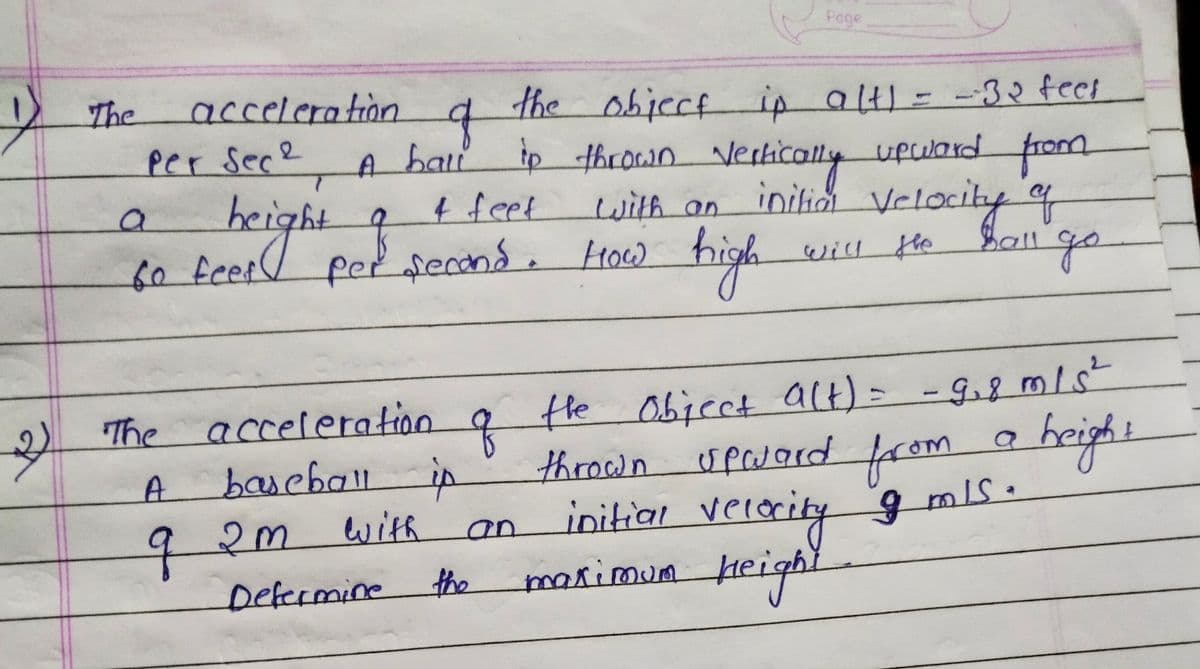 Page
1) The acceleration of the object is a(t) = -32 feet
per sec2, A ball is thrown vertically upward from
a height of 4 feet with an initial velocity of
60 feet per second. How high will the ball go
2) The acceleration of the object a(t) = -9.8 m/s²
A baseball is thrown upward from a height
of 2m with an initial velocity 9 m/s.
Determine the maximum height.